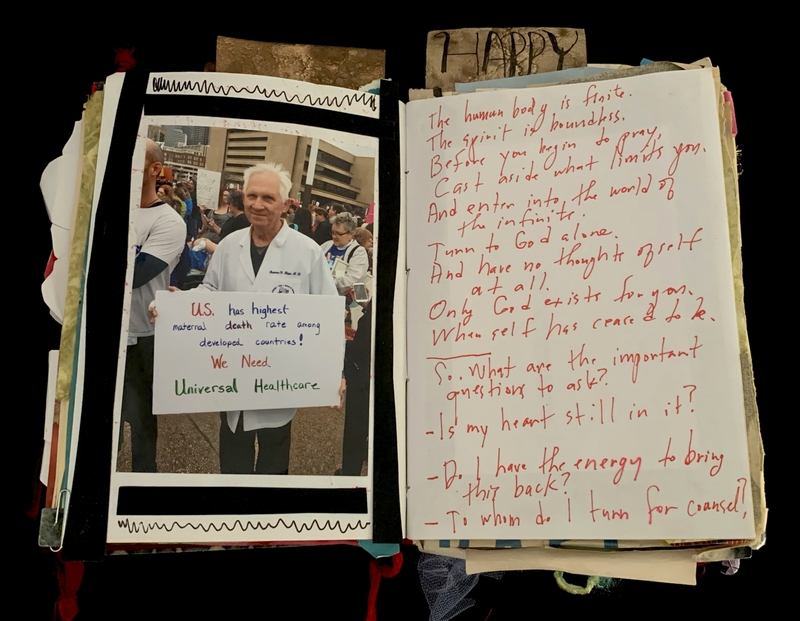 HAPPY
U.S. has highest
maternal death rate among
developed countries!
We Need
Universal Healthcare
The human body is finite.
The spirit is boundless.
Before you begin to pray,
Cast aside what limits you.
And enter into the world of
the infinite.
Turn to God alone.
And have no thoughts of self
at all.
Only God exists for you.
When self has ceased to be.
So.. What are the important
questions to ask?
- Is my heart still in it?
- Do I have the energy to bring
this back?
- To whom do I turn for counsel?